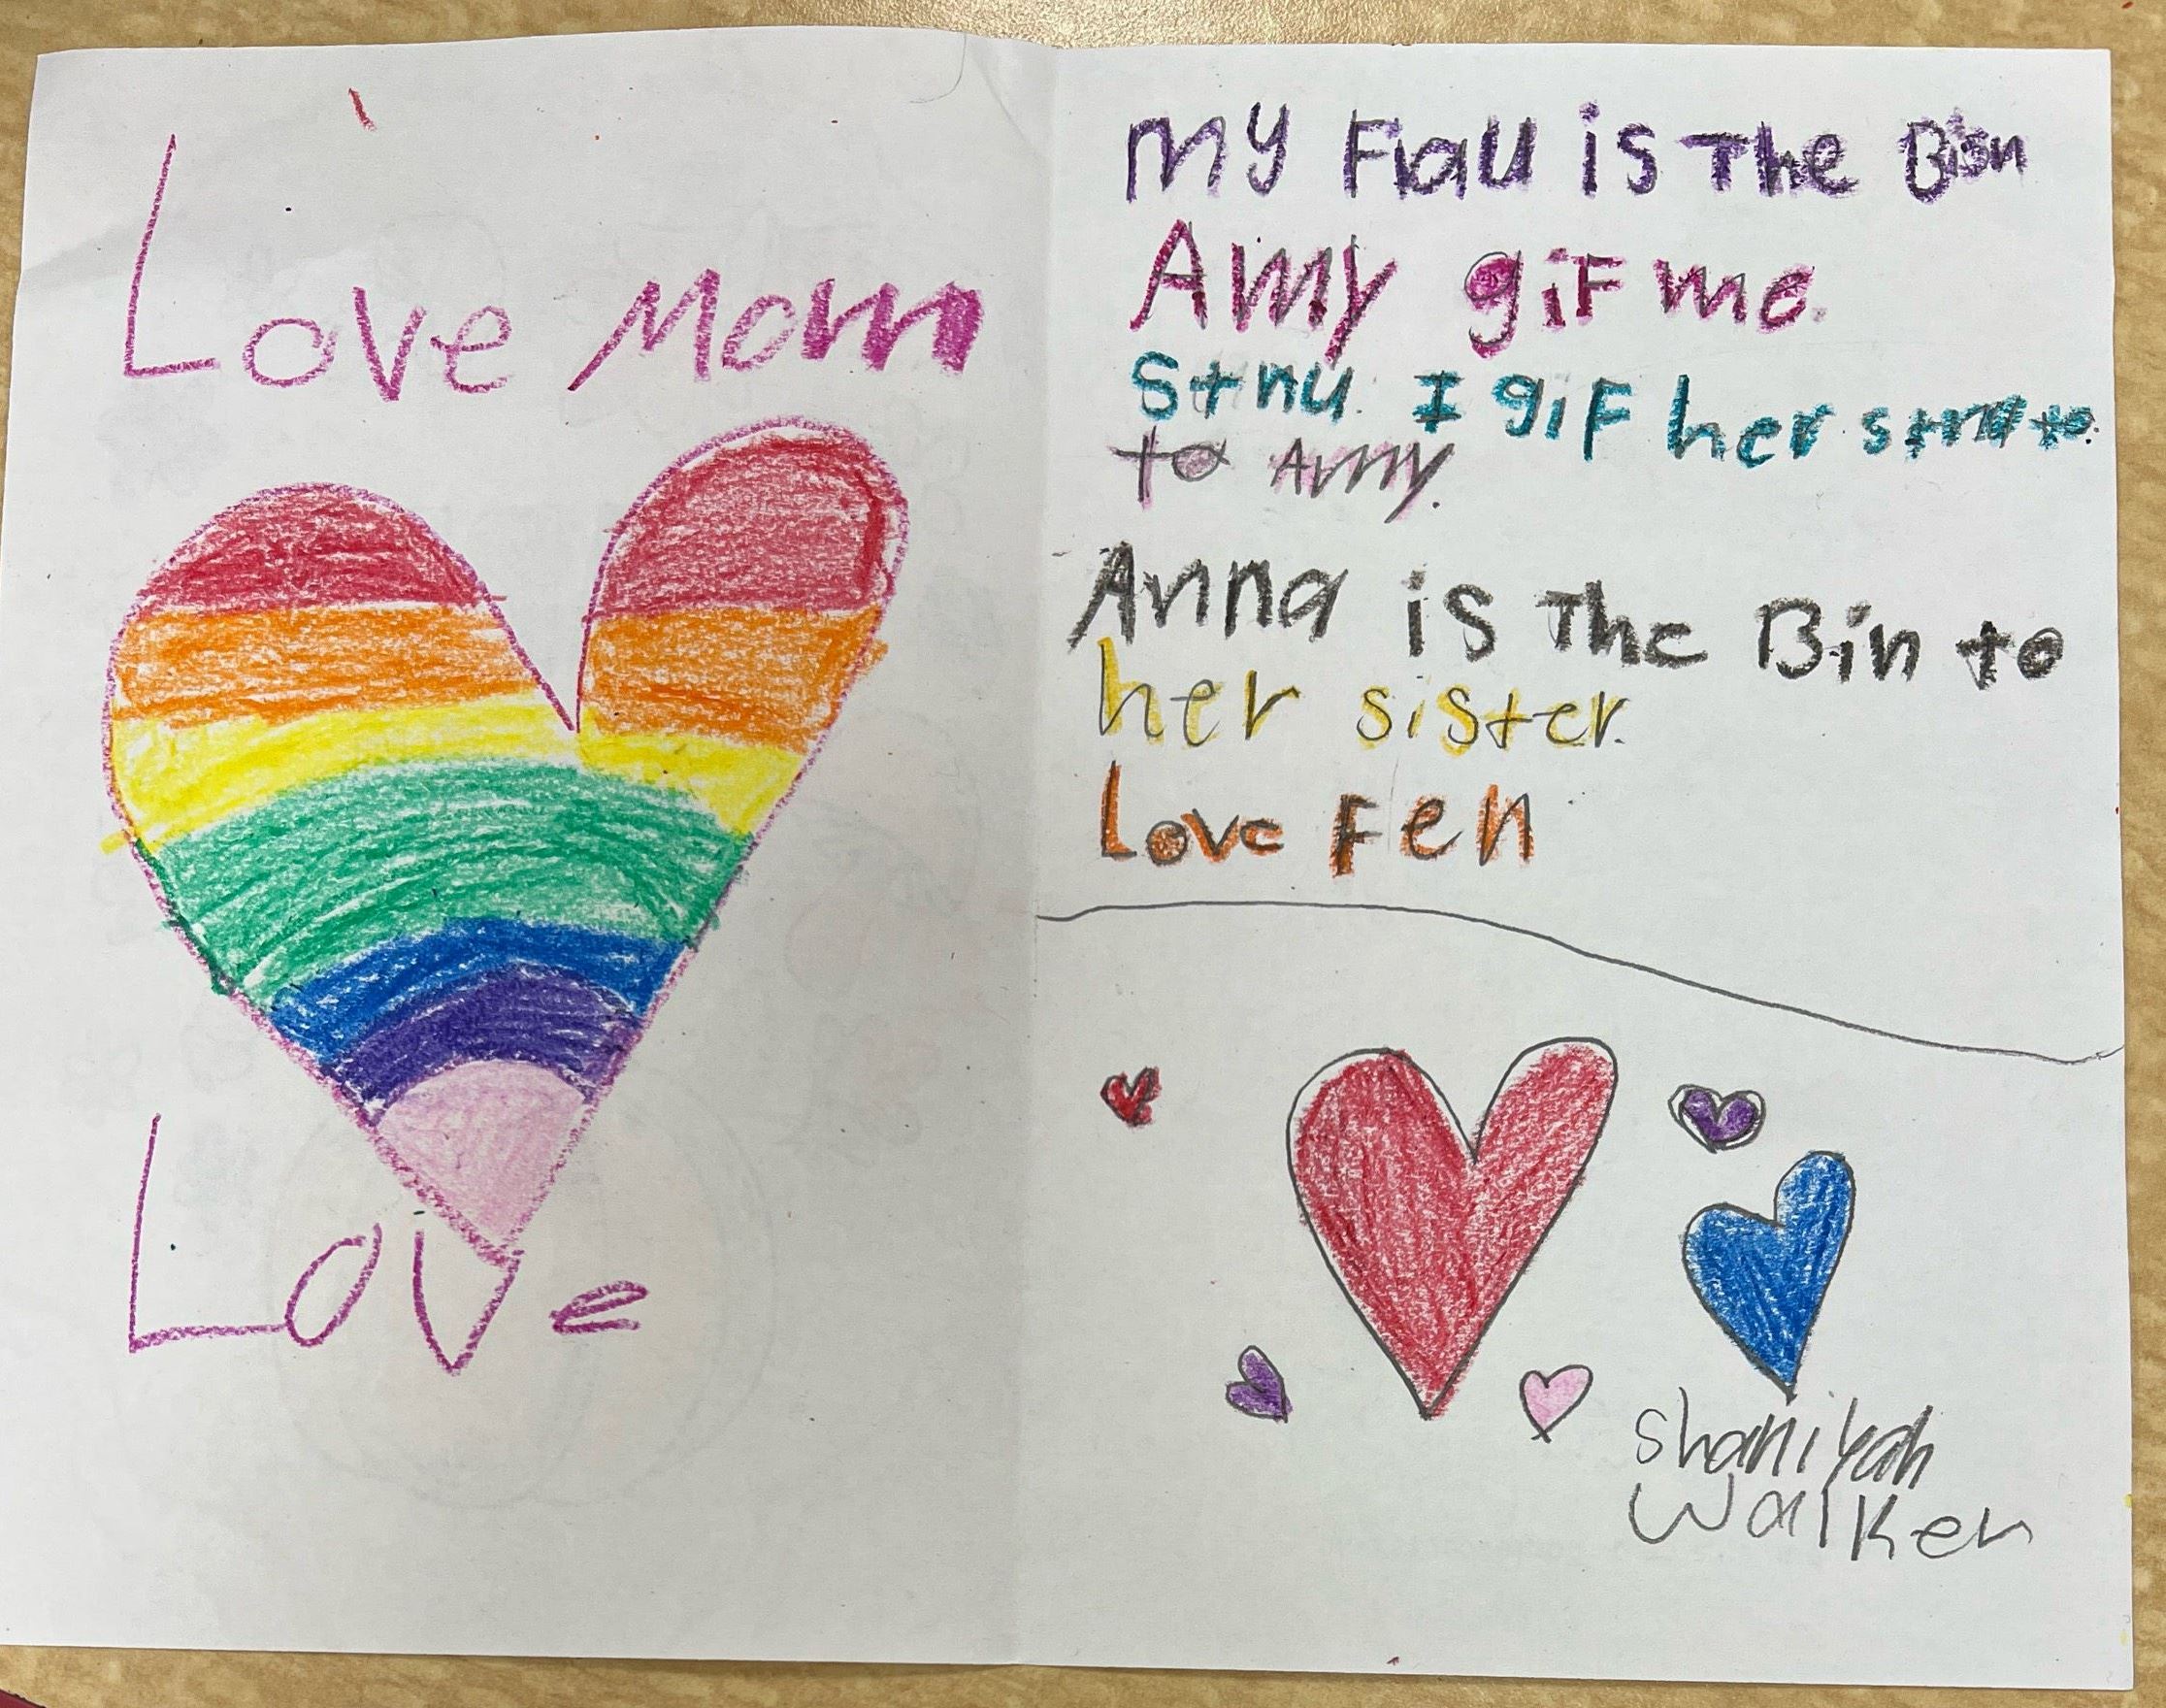 Love Mom
Love
my Flau is The Bisn
Amy gif me.
stnu. I gif her stnu to.
to Amy.
Anna is The Bin to
her sister.
Love Fen
Shaniyah
Walker